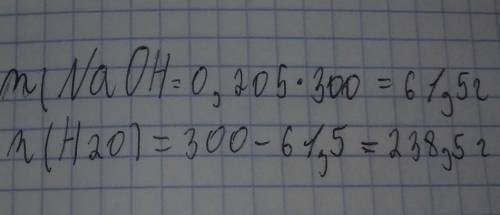 m(NaOH = 0,205·300 = 61,5г
m(H2O) = 300-61,5 = 238,5г